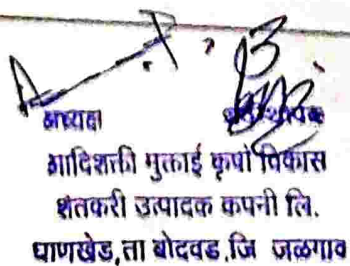 अध्यक्ष
आदिशक्ती मुक्ताई कृषी विकास
शेतकरी उत्पादक कंपनी लि.
घाणखेड,ता बोदवड.जि जळगाव